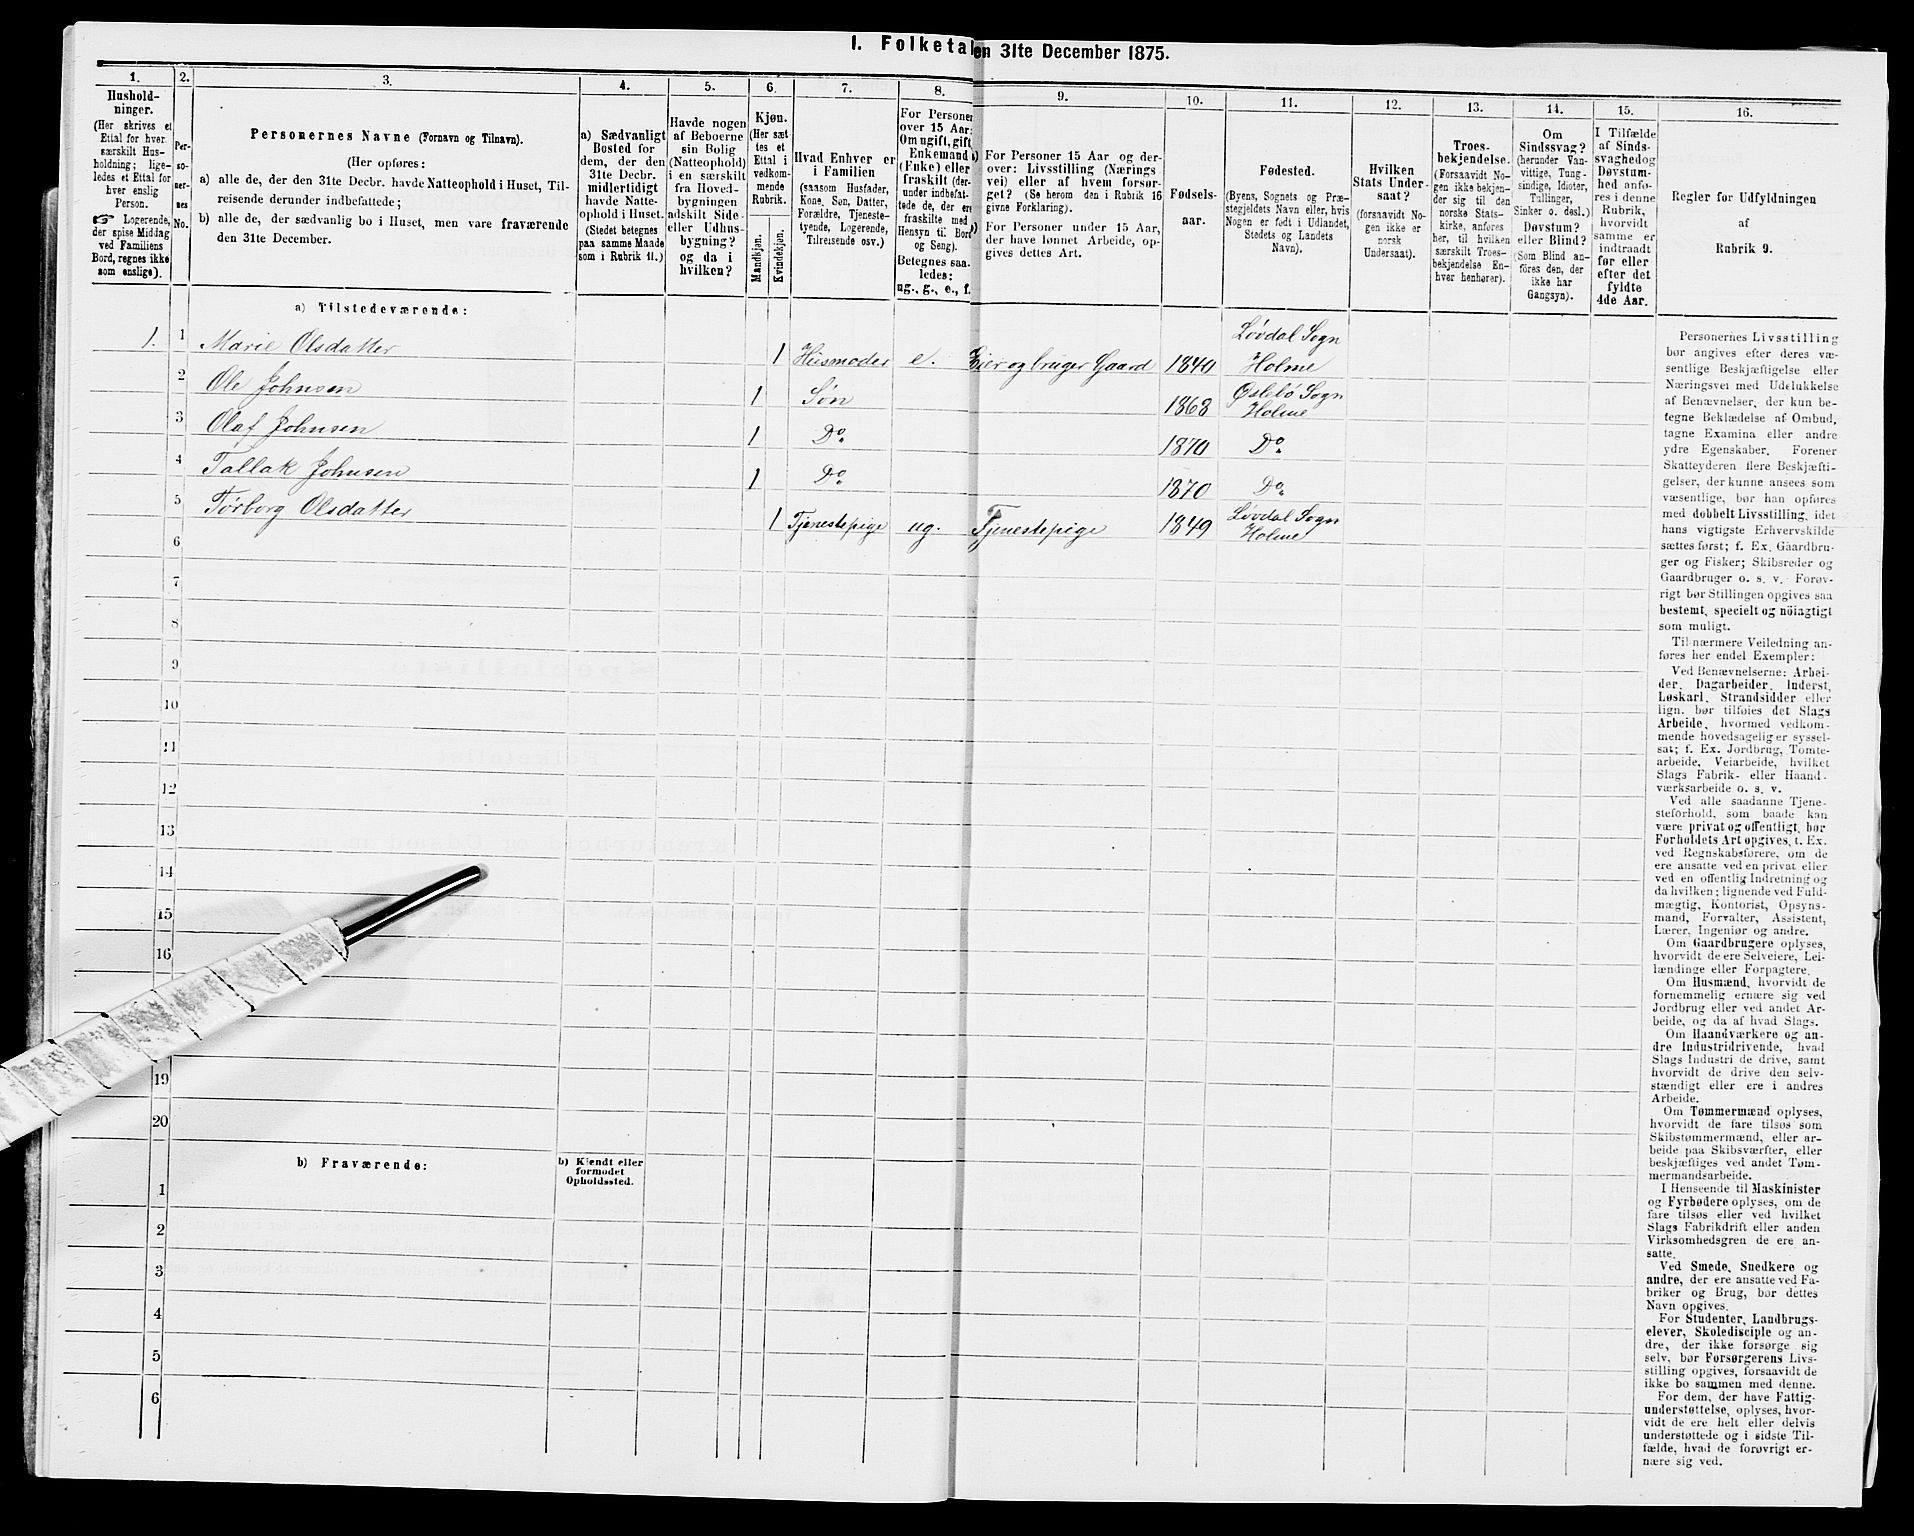 I. Folketal en 31te December 1875.
1.
2.
3.
4.
5.
6.
7.
8.
9.
10.
11.
12.
13.
14.
15.
16.
Hushold-
ninger.
(Her skrives et
Ettal for hver
særskilt Hus-
holdning; lige-
ledes et Ettal for
hver enslig
Person.
☞ Logerende,
der spise Middag
ved Familiens
Bord, regnes ikke
som enslige).
Per-
so-
ner-
nes
No.
Personernes Navne (Fornavn og Tilnavn).
(Her opføres:
a) alle de, der den 31te Decbr. havde Natteophold i Huset, Til-
reisende derunder indbefattede;
b) alle de, der sædvanlig bo i Huset, men vare fraværende
den 31te December.
a) Sædvanligt
Bosted for
dem, der den
31te Decbr.
midlertidigt
havde Natte-
ophold i Huset.
(Stedet betegnes
paa samme Maade
som i Rubrik 11.)
Havde nogen
af Beboerne
sin Bolig
(Natteophold)
i en særskilt
fra Hoved-
bygningen
adskilt Side-
eller Udhus-
bygning?
og da i
hvilken?
Kjøn.
(Her sæt-
tes et
Ettal i
vedkom-
mende
Rubrik.
Mandkjøn.
Kvindekjøn.
Hvad Enhver er
i Familien
(saasom Husfader,
Kone, Søn, Datter,
Forældre, Tjeneste-
tyende, Logerende,
Tilreisende osv.)
For Personer
over 15 Aar:
Om ugift, gift,
Enkemand
(Enke) eller
fraskilt (der-
under indbefat-
tede de, der ere
fraskilte med
Hensyn til Bord
og Seng).
Betegnes saa-
ledes:
ug., g., e., f.
For Personer 15 Aar og der-
over: Livsstilling (Nærings
vei) eller af hvem forsør-
get? (Se herom den i Rubrik 16
givne Forklaring).
For Personer under 15 Aar,
der have lønnet Arbeide, op-
gives dettes Art.
Fødsels-
aar.
Fødested.
(Byens, Sognets og Præ-
stegjeldets Navn eller, hvis
Nogen er født i Udlandet,
Stedets og Landets
Navn).
Hvilken
Stats Under-
saat?
(forsaavidt No-
gen ikke er
norsk
Undersaat).
Troes-
bekjendelse.
(Forsaavidt No-
gen ikke bekjen-
der sig til den
norske Stats-
kirke, anføres
her, til hvilken
særskilt Troes-
bekjendelse En-
hver henhører).
Om
Sindssvag?
(herunder Van-
vittige, Tung-
sindige, Idioter,
Tullinger,
Sinker o. desl.)
Døvstum?
eller Blind?
(Som Blind an-
føres den, der
ikke har
Gangsyn).
I Tilfælde
af Sinds-
svaghed og
Døvstum-
hed anfø-
res i denne
Rubrik,
hvorvidt
samme er
indtraadt
før eller
efter det
fyldte
4de Aar.
Regler for Udfyldningen
af
Rubrik 9.
a) Tilstedeværende:
1. 1 Marie Olsdatter 1 Husmoder e. Eier og bruger Gaard 1840 Løvdal Sogn
Holme
2 Ole Johnsen 1 Søn 1868 Øslebø Sogn
Holme
3 Olaf Johnsen 1 Do. 1870 Do.
4 Tallak Johnsen 1 Do. 1870 Do.
5 Tørborg Olsdatter 1 Tjenestepige ug. Tjenestepige 1849 Løvdal Sogn
Holme
6
7
8
9
10
11
12
13
14
15
16
19
20
b) Fraværende:
b) Kjendt eller
formodet
Opholdssted.
1
2
3
4
5
6
Personernes Livsstilling
bør angives efter deres væ-
sentlige Beskjæftigelse eller
Næringsvei med Udelukkelse
af Benævnelser, der kun be-
tegne Beklædelse af Ombud,
tagne Examina eller andre
ydre Egenskaber. Forener
Skatteyderen flere Beskjæfti-
gelser, der kunne ansees som
væsentlige, bør han opføres
med dobbelt Livsstilling, idet
hans vigtigste Erhvervskilde
sættes først; f. Ex. Gaardbru-
ger og Fisker; Skibsreder og
Gaardbruger o. s. v. Forøv-
rigt bør Stillingen opgives saa
bestemt, specielt og nöiagtigt
som muligt.
Til nærmere Veiledning an-
føres her endel Exempler:
Ved Benævnelserne: Arbei-
der, Dagarbeider, Inderst,
Løskarl, Strandsidder eller
lign. bør tilføies det Slags
Arbeide, hvormed vedkom-
mende hovedsagelig er syssel-
sat; f. Ex. Jordbrug, Tomte-
arbeide, Veiarbeide, hvilket
Slags Fabrik- eller Haand-
værksarbeide o. s. v.
Ved alle saadanne Tjene-
steforhold, som baade kan
være privat og offentligt, bør
Forholdets Art opgives, t. Ex.
ved Regnskabsførere, om de
ere ansatte ved en privat eller
ved en offentlig Indretning og
da hvilken; lignende ved Fuld-
mægtig, Kontorist, Opsyns-
mand, Forvalter, Assistent,
Lærer, Ingeniør og andre.
Om Gaardbrugere oplyses,
hvorvidt de ere Selveiere, Lei-
lændinge eller Forpagtere.
Om Husmænd, hvorvidt de
fornemmelig ernære sig ved
Jordbrug eller ved andet Ar-
beide, og da af hvad Slags.
Om Haandværkere og an-
dre Industridrivende, hvad
Slags Industri de drive, samt
hvorvidt de drive den selv-
stændigt eller ere i andres
Arbeide.
Om Tømmermænd oplyses,
hvorvidt de fare tilsøs som
Skibstømmermænd, eller ar-
beide paa Skibsværfter, eller
beskjæftiges ved andet Tøm-
mermandsarbeide.
I Henseende til Maskinister
og Fyrbødere oplyses, om de
fare tilsøs eller ved hvilket
Slags Fabrikdrift eller anden
Virksomhedsgren de ere an-
satte.
Ved Smede, Snedkere og
andre, der ere ansatte ved Fa-
briker og Brug, bør dettes
Navn opgives.
For Studenter, Landbrugs-
elever, Skoledisciple og an-
dre, der ikke forsørge sig
selv, bør Forsørgerens Livs-
stilling opgives, forsaavidt de
ikke bo sammen med denne.
For dem, der have Fattig-
understøttelse, oplyses, hvor-
vidt de ere helt eller delvis
understøttede og i sidste Til-
fælde, hvad de forøvrigt er-
nære sig ved.